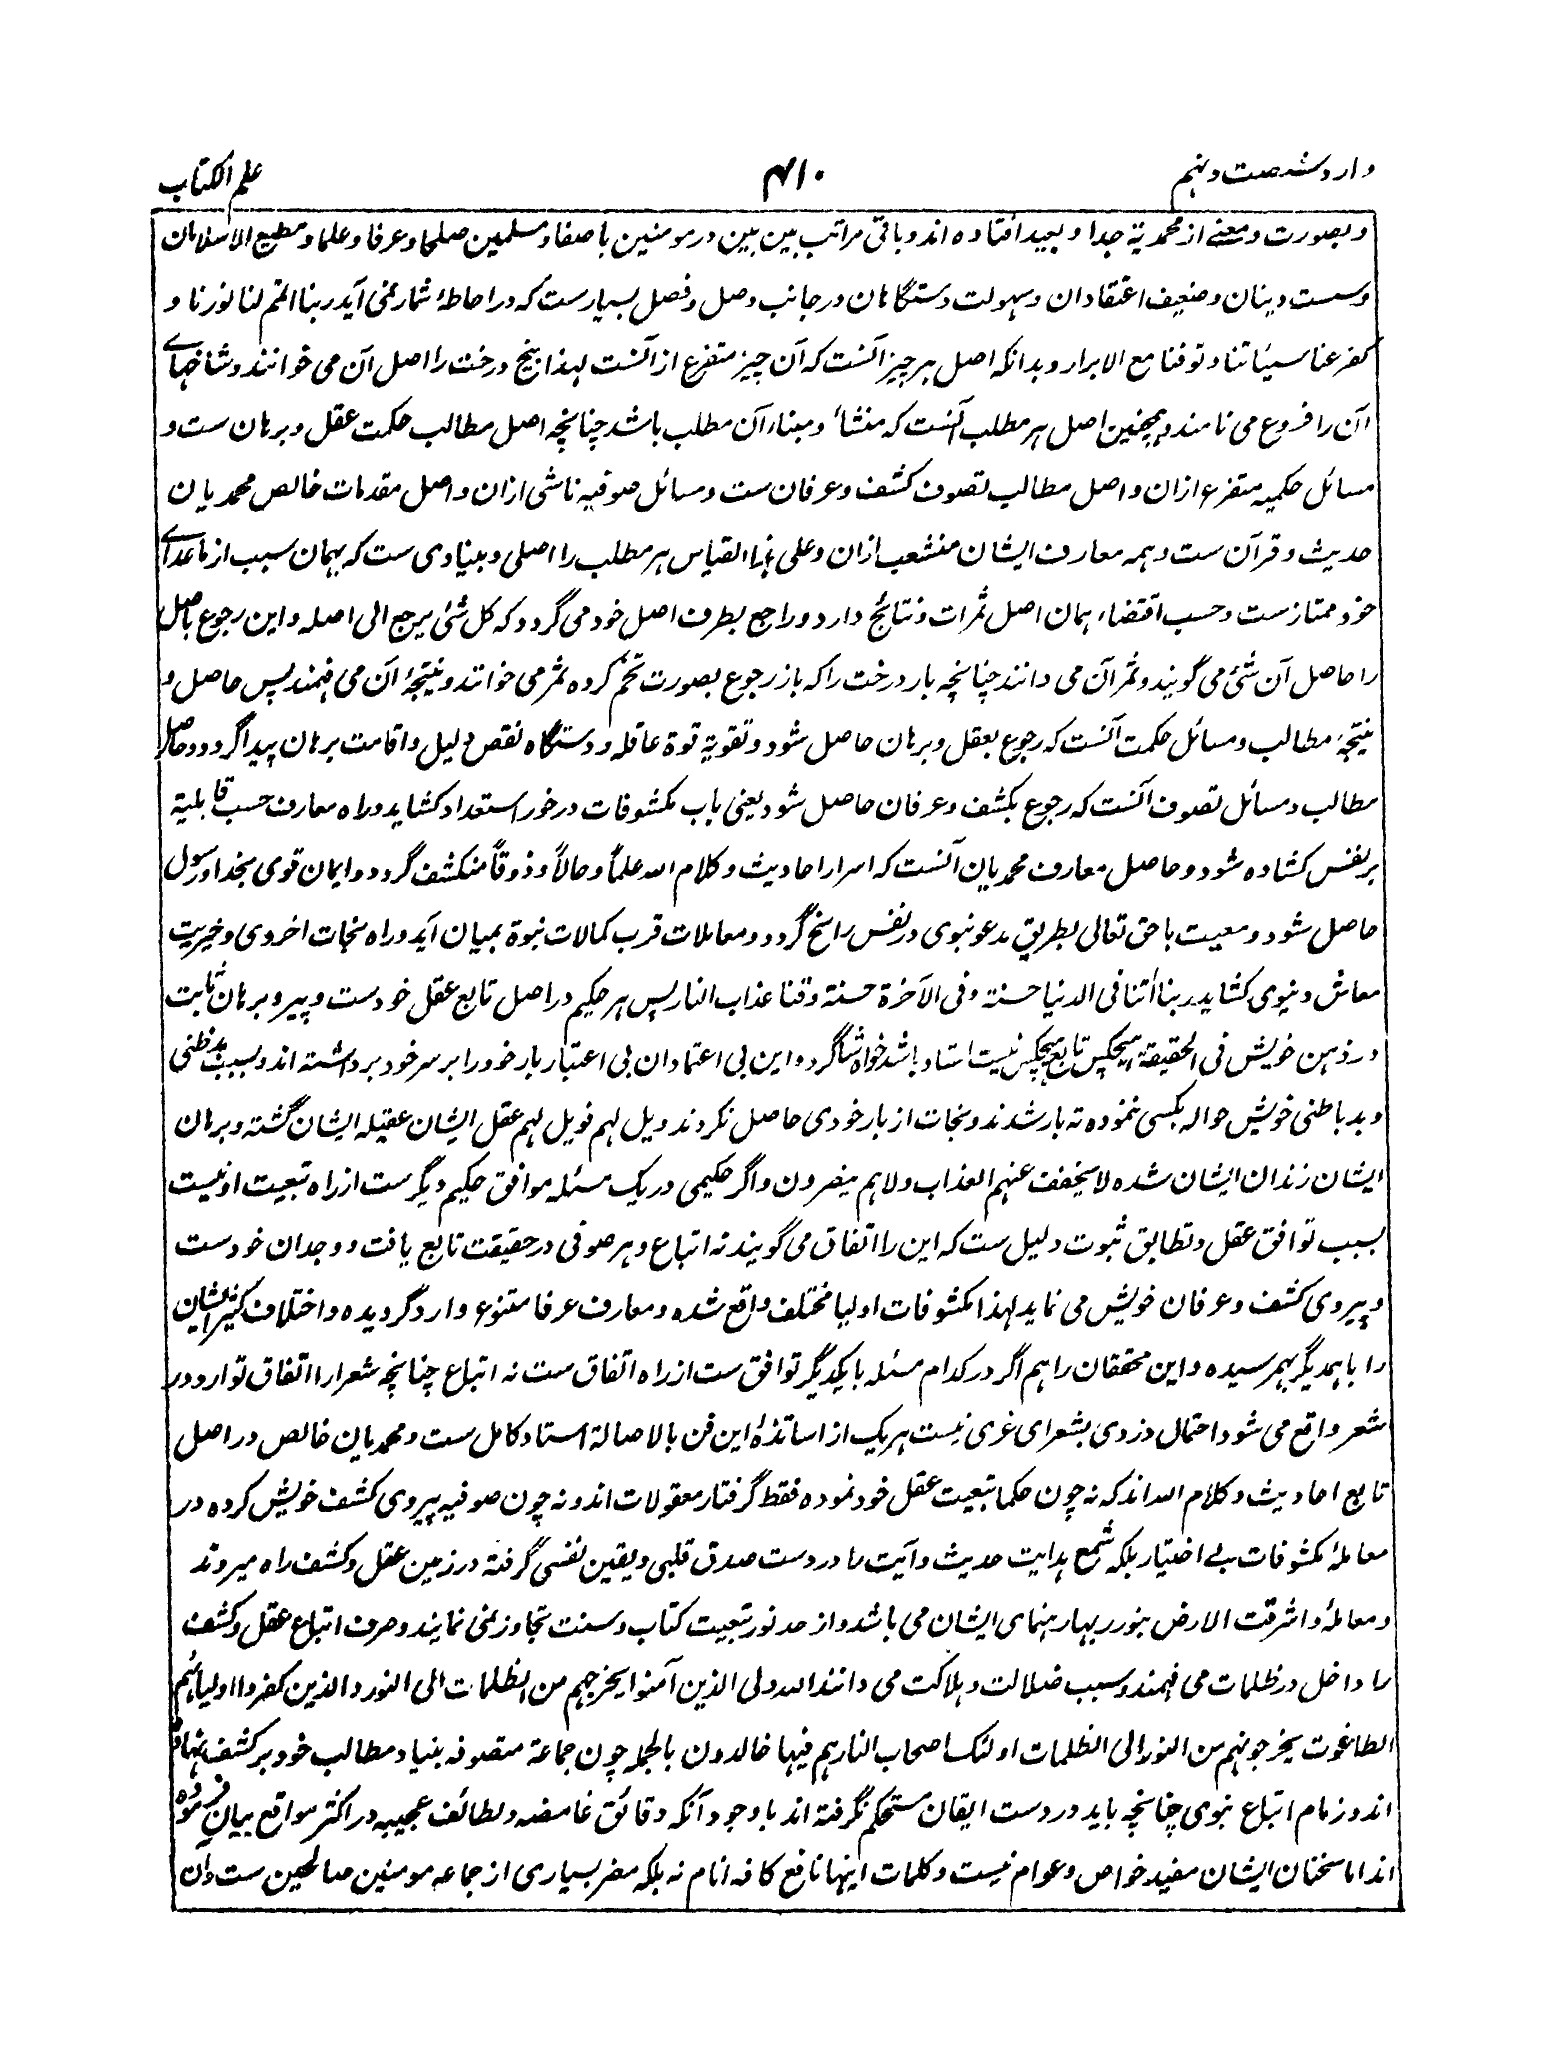 وارد شصت و نهم
۴۱۰
علم الکتاب
و بصورت و معنے از محمدیۃ جدا و بعید افتاده اند و باقی مراتب بین بین در مومنین باصفا و مسلمین صلحا و عرفا و علما و مطیع الاسلامان
و سست دینان و ضعیف اعتقادان و سہولت دستگاہان در جانب وصل و فصل بسیارست که در احاطۂ شمار نمی آید ربنا اتمم لنا نورنا و
کفر عنا سیئاتنا و توفنا مع الابرار و بدانکه اصل ہر چیز آنست که آن چیز متفرع از آنست لہذا بیخ درخت را اصل آن می خوانند و شاخہاے
آن را فروع می نامند و ہمچنین اصل ہر مطلب آنست که منشأ و مبناء آن مطلب باشد چنانچہ اصل مطالب حکمت عقل و برہان ست و
مسائل حکمیہ متفرع ازان و اصل مطالب تصوف کشف و عرفان ست و مسائل صوفیہ ناشی ازان و اصل مقدمات خالص محمدیان
حدیث و قرآن ست و ہمہ معارف ایشان منشعب ازان و علی ہذا القیاس ہر مطلب را اصلی و بنیادی ست کہ بہمان سبب از ماعداے
خود ممتاز ست و حسب اقتضاء ہمان اصل ثمرات و نتائج دارد و راجع بطرف اصل خود می گردد کہ کل شئ یرجع الی اصلہ و این رجوع باصل
را حاصل آن شئ می گویند و ثمر آن می دانند چنانچہ بار درخت را کہ باز رجوع بصورت تخم کردہ ثمر می خوانند و نتیجۂ آن می فہمند پس حاصل و
نتیجۂ مطالب و مسائل حکمت آنست کہ رجوع بعقل و برہان حاصل شود و تقویۃ قوۃ عاقلہ و دستگاہ نقض دلیل و اقامت برہان پیدا گردد و حاصل
مطالب و مسائل تصوف آنست کہ رجوع بکشف و عرفان حاصل شود یعنی باب مکشوفات در خور استعداد کشاید و راہ معارف حسب قابلیۃ
بر نفس کشادہ شود و حاصل معارف محمدیان آنست کہ اسرار احادیث و کلام اللہ علماً و حالاً و ذوقاً منکشف گردد و ایمان قوی بخدا و رسول
حاصل شود و معیت باحق تعالی بطریق مدعو نبوی در نفس راسخ گردد و معاملات قرب کمالات نبوۃ بمیان آید و راہ نجات اخروی و خیریت
معاش دنیوی کشاید ربنا آتنا فی الدنیا حسنۃ و فی الآخرۃ حسنۃ وقنا عذاب النار پس ہر حکیم در اصل تابع عقل خودست و پیرو برہان ثابت
در ذہن خویش فی الحقیقۃ ہیچکس تابع ہیچکس نیست استاد باشد خواہ شاگرد و این بی اعتمادان بی اعتبار بار خود را بر سر خود برداشتہ اند و بسبب بدظنی
و بد باطنی خویش حوالہ بکسی ننمودہ تہ بار شدند و نجات از بار خودی حاصل نکردند ویل لہم فویل لہم عقل ایشان عقیلہ ایشان گشتہ و برہان
ایشان زندان ایشان شدہ لا یخفف عنہم العذاب ولا ہم ینصرون و اگر حکیمی در یک مسئلہ موافق حکیم دیگر ست از راہ تبعیت او نیست
بسبب توافق عقل و تطابق ثبوت دلیل ست کہ این را اتفاق می گویند نہ اتباع و ہر صوفی در حقیقت تابع یافت و وجدان خودست
و پیروی کشف و عرفان خویش می نماید لہذا مکشوفات اولیا مختلف واقع شدہ و معارف عرفا متنوع وارد گردیدہ و اختلاف کثیر ایشان
را باہمدیگر بہم رسیدہ و این محققان را ہم اگر در کدام مسئلہ با یکدیگر توافق ست از راہ اتفاق ست نہ اتباع چنانچہ شعرا را اتفاق توارد در
شعر واقع می شود احتمال دزدی بشعرای غری نیست ہر یک از اساتذۂ این فن بالاصالۃ استاد کامل ست و محمدیان خالص در اصل
تابع احادیث و کلام اللہ اند کہ نہ چون حکما تبعیت عقل خود نمودہ فقط گرفتار معقولات اند و نہ چون صوفیہ پیروی کشف خویش کردہ در
معاملۂ مکشوفات بے اختیار بلکہ شمع ہدایت حدیث و آیت را در دست صدق قلبی و یقین نفسی گرفتہ در زمین عقل و کشف راہ میروند
و معاملۂ و اشرقت الارض بنور ربہا رہنمای ایشان می باشد و از حد نور تبعیت کتاب و سنت تجاوز نمی نمایند و صرف اتباع عقل و کشف
را داخل در ظلمات می فہمند و سبب ضلالت و ہلاکت می دانند اللہ ولی الذین آمنوا یخرجہم من الظلمات الی النور والذین کفروا اولیاءہم
الطاغوت یخرجونہم من النور الی الظلمات اولئک اصحاب النار ہم فیہا خالدون بالجملہ چون جماعۃ متصوفہ بنیاد مطالب خود بر کشف نہادہ
اند و زمام اتباع نبوی چنانچہ باید در دست ایقان مستحکم نگرفتہ اند با وجود آنکہ دقائق غامضہ و لطائف عجیبہ در اکثر مواقع بیان فرمودہ
اند اما سخنان ایشان مفید خواص و عوام نیست و کلمات اینہا نافع کافہ انام نہ بلکہ مضر بسیاری از جماعہ مومنین صالحین ست و آن